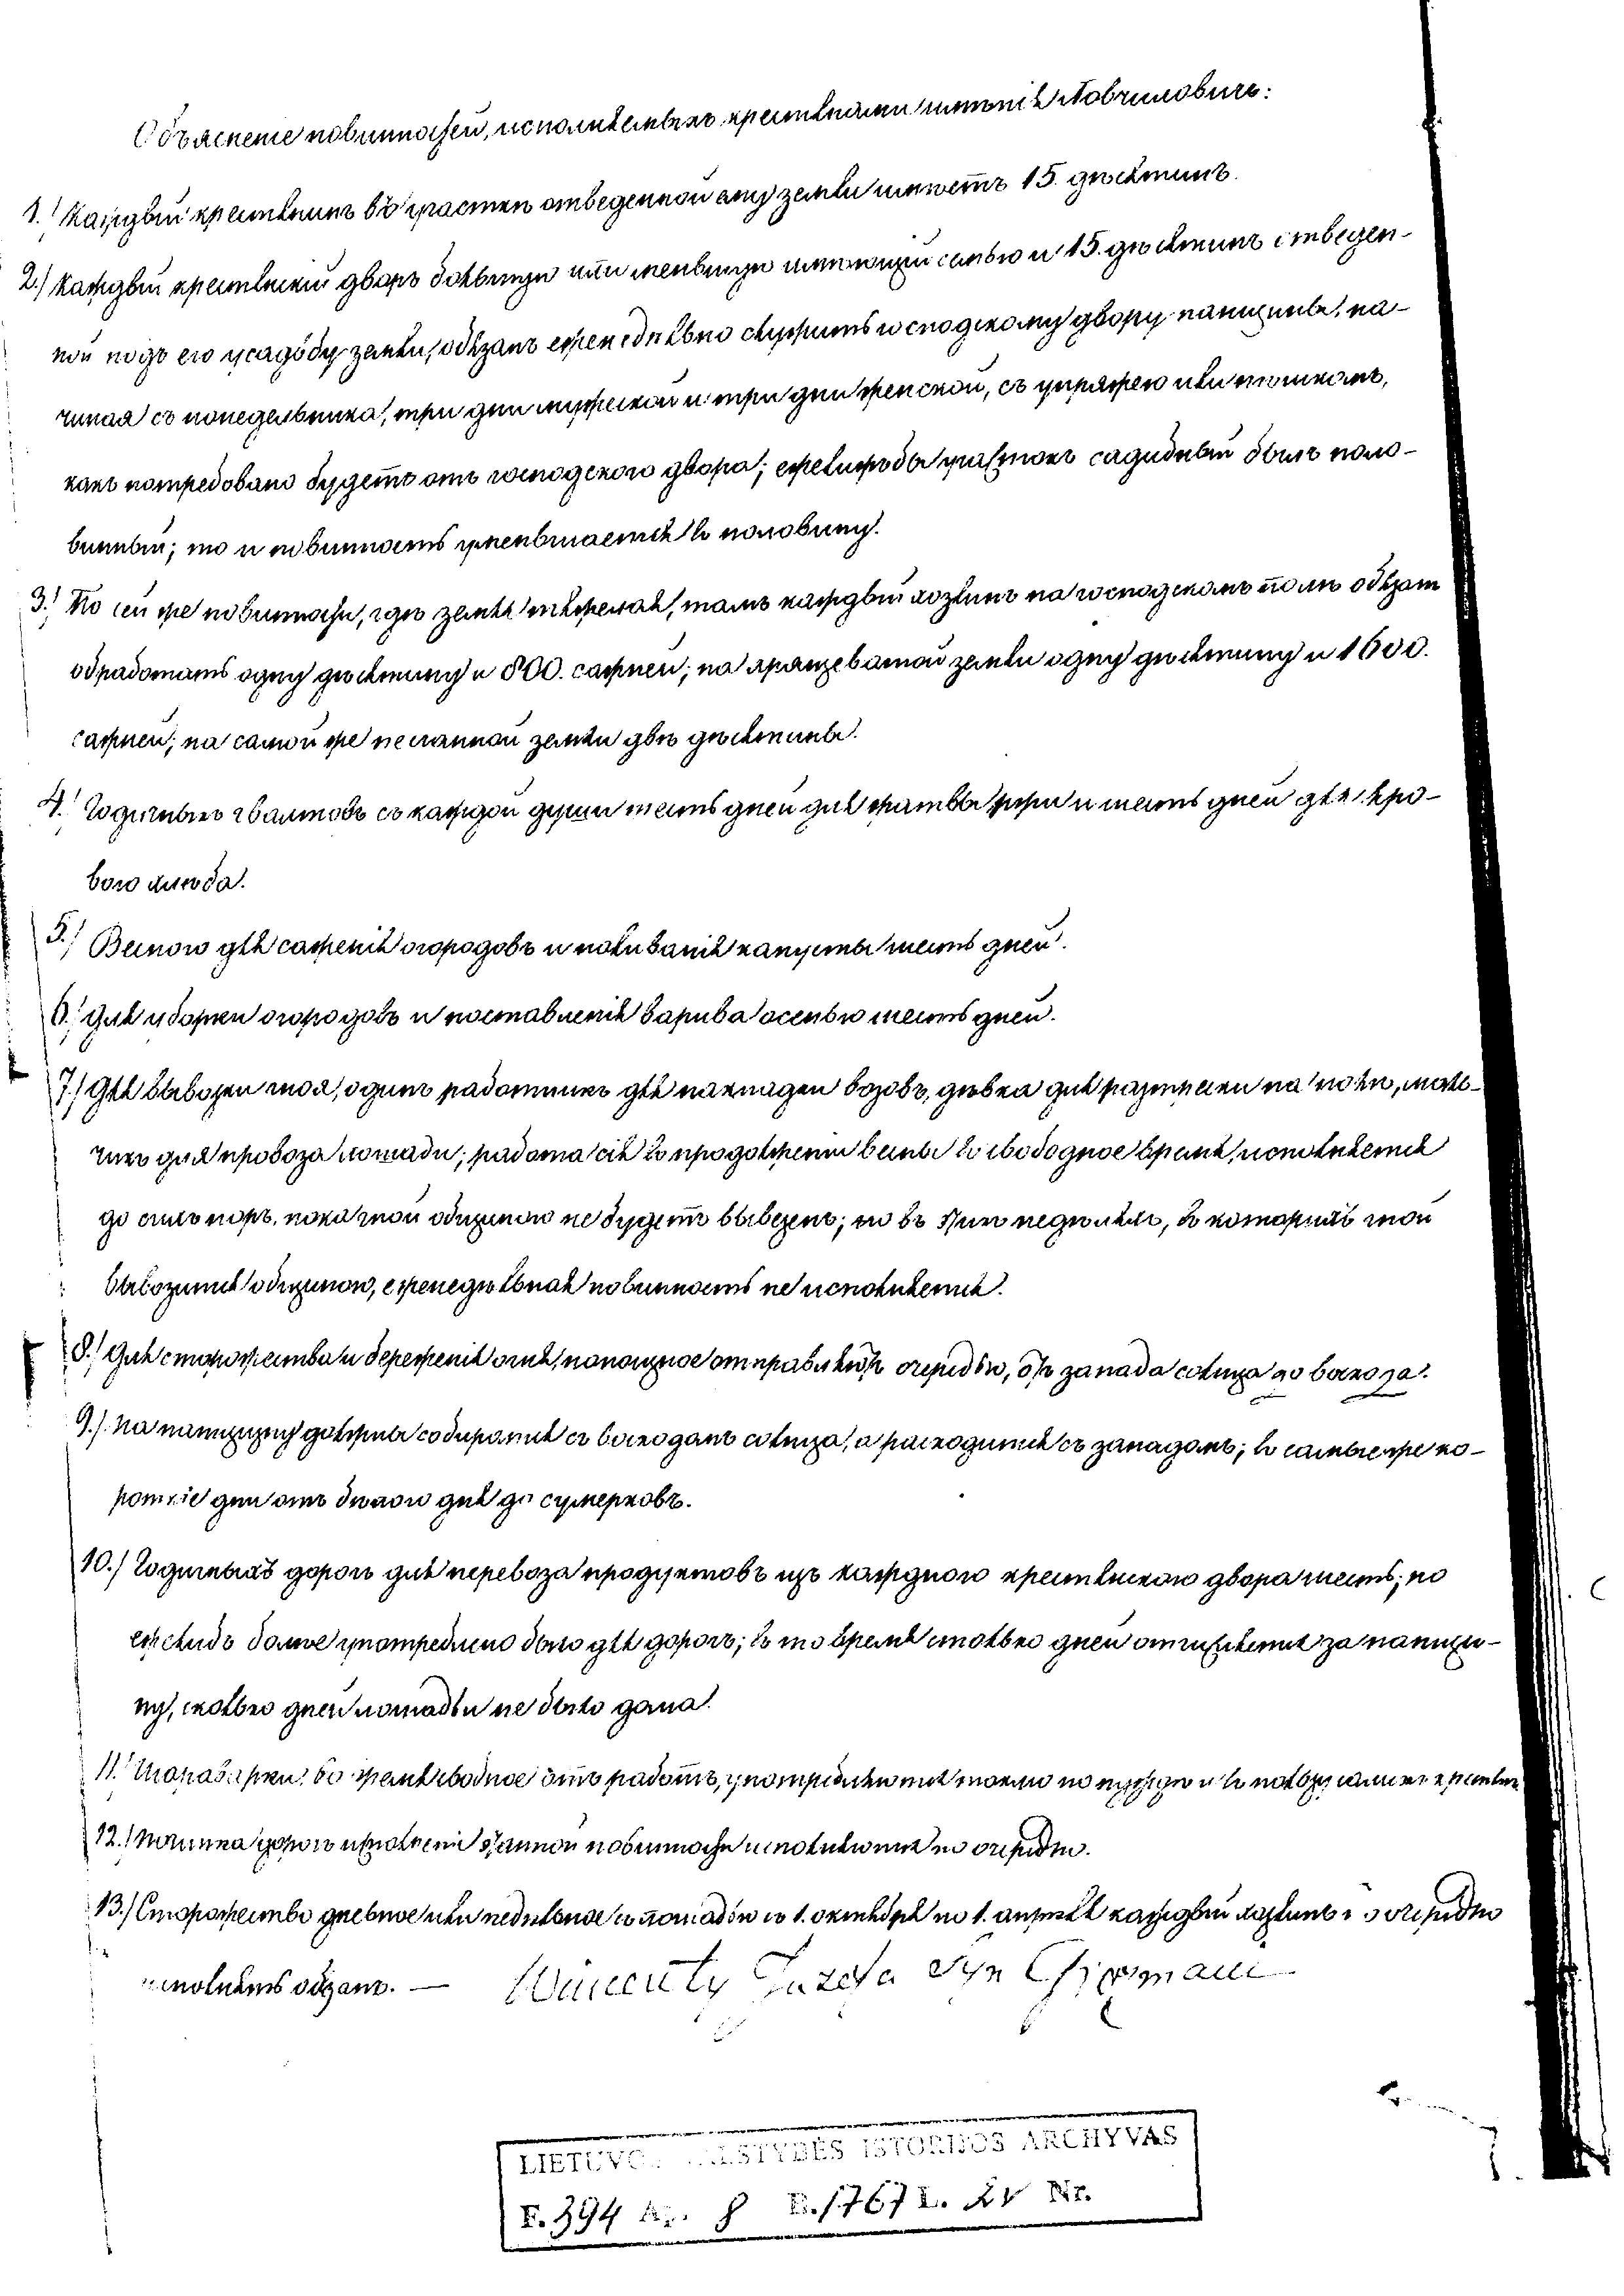 Объясненіе повинностей, исполняемыхъ крестьянами имѣнія Ловчиловичь:
1.) Каждый крестьянинъ въ участкѣ отведенной ему земли имѣетъ 15. десятинъ.
2.) Каждый крестьянскій дворъ большую или меньшую имѣющій семью и 15. десятинъ отведен-
ной подъ его усадьбу земли, обязанъ еженедѣльно служить господскому двору панщины, на-
чиная съ понедельника, три дни мужской и три дни женской, съ упряжею или пѣшкомъ,
какъ потребовано будетъ отъ господского двора; ежелижъ бы участокъ садибный былъ поло-
винный; то и повинность уменьшается въ половину.
3.) По сей же повинности, гдѣ земля тяжелая, тамъ каждый хозяинъ на господскомъ полѣ обязан
обработать одну десятину и 800. сажней; на хрящеватой земли одну десятину и 1600.
сажней; на самой же песчанной земли двѣ десятины.
4.) Годичныхъ гвалтовъ съ каждой души шесть дней для жатвы ржи и шесть дней для яро-
вого хлѣба.
5.) Весною для саженія огородовъ и поливанія капусты шесть дней.
6.) Для уборки огородовъ и поставленія варива осенью шесть дней.
7.) Для вывозки гноя, одинъ работникъ для накладки возовъ, дѣвка для разтряски на поли, маль-
чикъ для провоза лошади; работа сія въ продолженіи весны въ свободное время, исполняется
до сихъ поръ, пока гной общиною не будетъ вывезенъ; но въ тѣхъ недѣляхъ, въ которыхъ гной
вывозится общиною, еженедѣльная повинность не исполняется.
8.) Для сторожества и береженія огня, полнощное отправляютъ очередью, отъ запада солнца до восхода.
9.) На панщизну должны собиратся съ восходомъ солнца, а расходится съ западомъ; въ самые же ко-
роткіе дни отъ бѣлого дня до сумерковъ.
10.) Годичныхъ дорогъ для перевоза продуктовъ изъ каждного крестьянского двора шесть; но
ежелибъ болѣе употреблено было для дорогъ; въ то время столько дней отчисляется за панщи-
ну, сколько дней лошадьми не было дано.
11.) Шарварки, во время свободное отъ работъ, употребляются токмо по нужде и въ пользу самихъ крестьян
12.) Починка дорогъ исполненіи данной повинности исполняются по очередно.
13.) Сторожество дневное или недѣльное съ лошадью съ 1. октября по 1. апреля каждый хозяинъ по очередно
исполнять обязанъ. —
Wincenty Juzefa Syn
LIETUVOS VALSTYBĖS ISTORIJOS ARCHYVAS
F. 394 Ap. 8 B. 1767 L. 2v Nr.